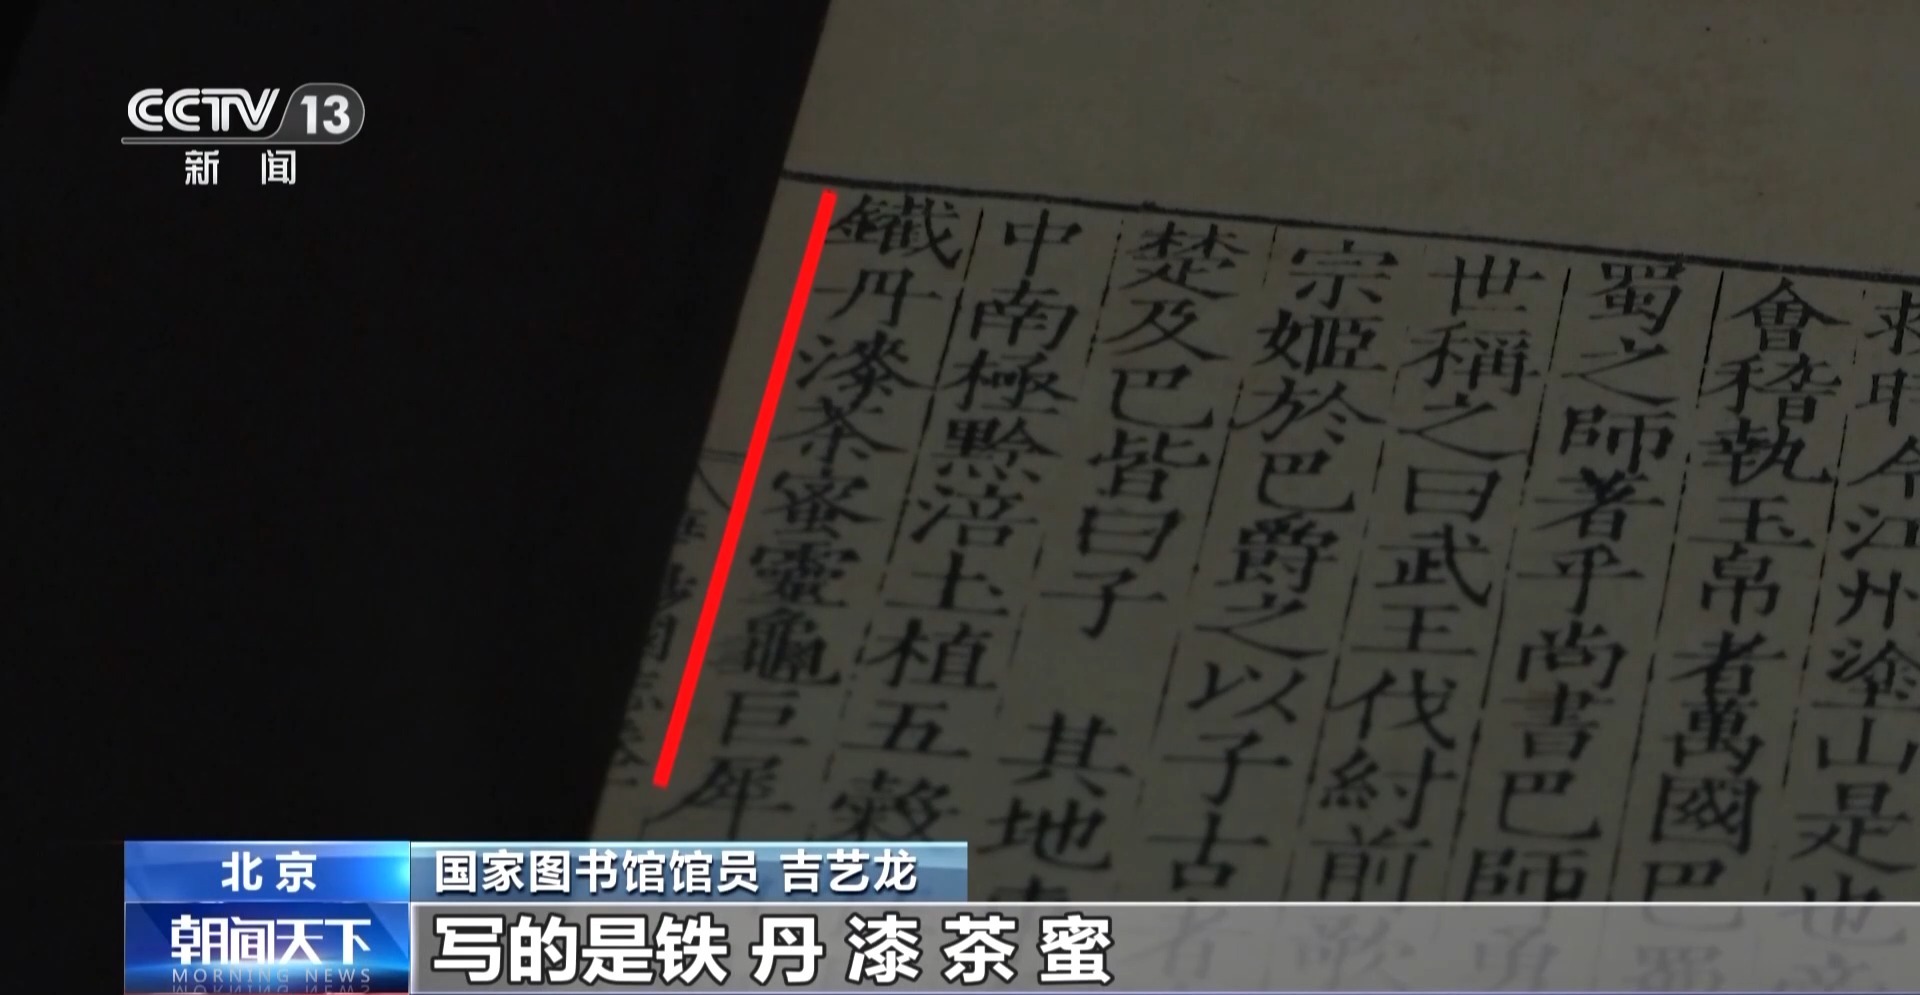 CCTV 13
新闻
救時今江州塗山是也帝
會稽執玉帛者萬國巴蜀
蜀之師著乎尚書巴師勇
世稱之曰武王伐紂前歌
宗姬於巴爵之以子古者
楚及巴皆曰子 其地東
中南極黔涪土植五穀
鐵丹漆茶蜜靈龜巨犀
北京
国家图书馆馆员 吉艺龙
朝闻天下
MORNING NEWS
写的是铁 丹 漆 茶 蜜